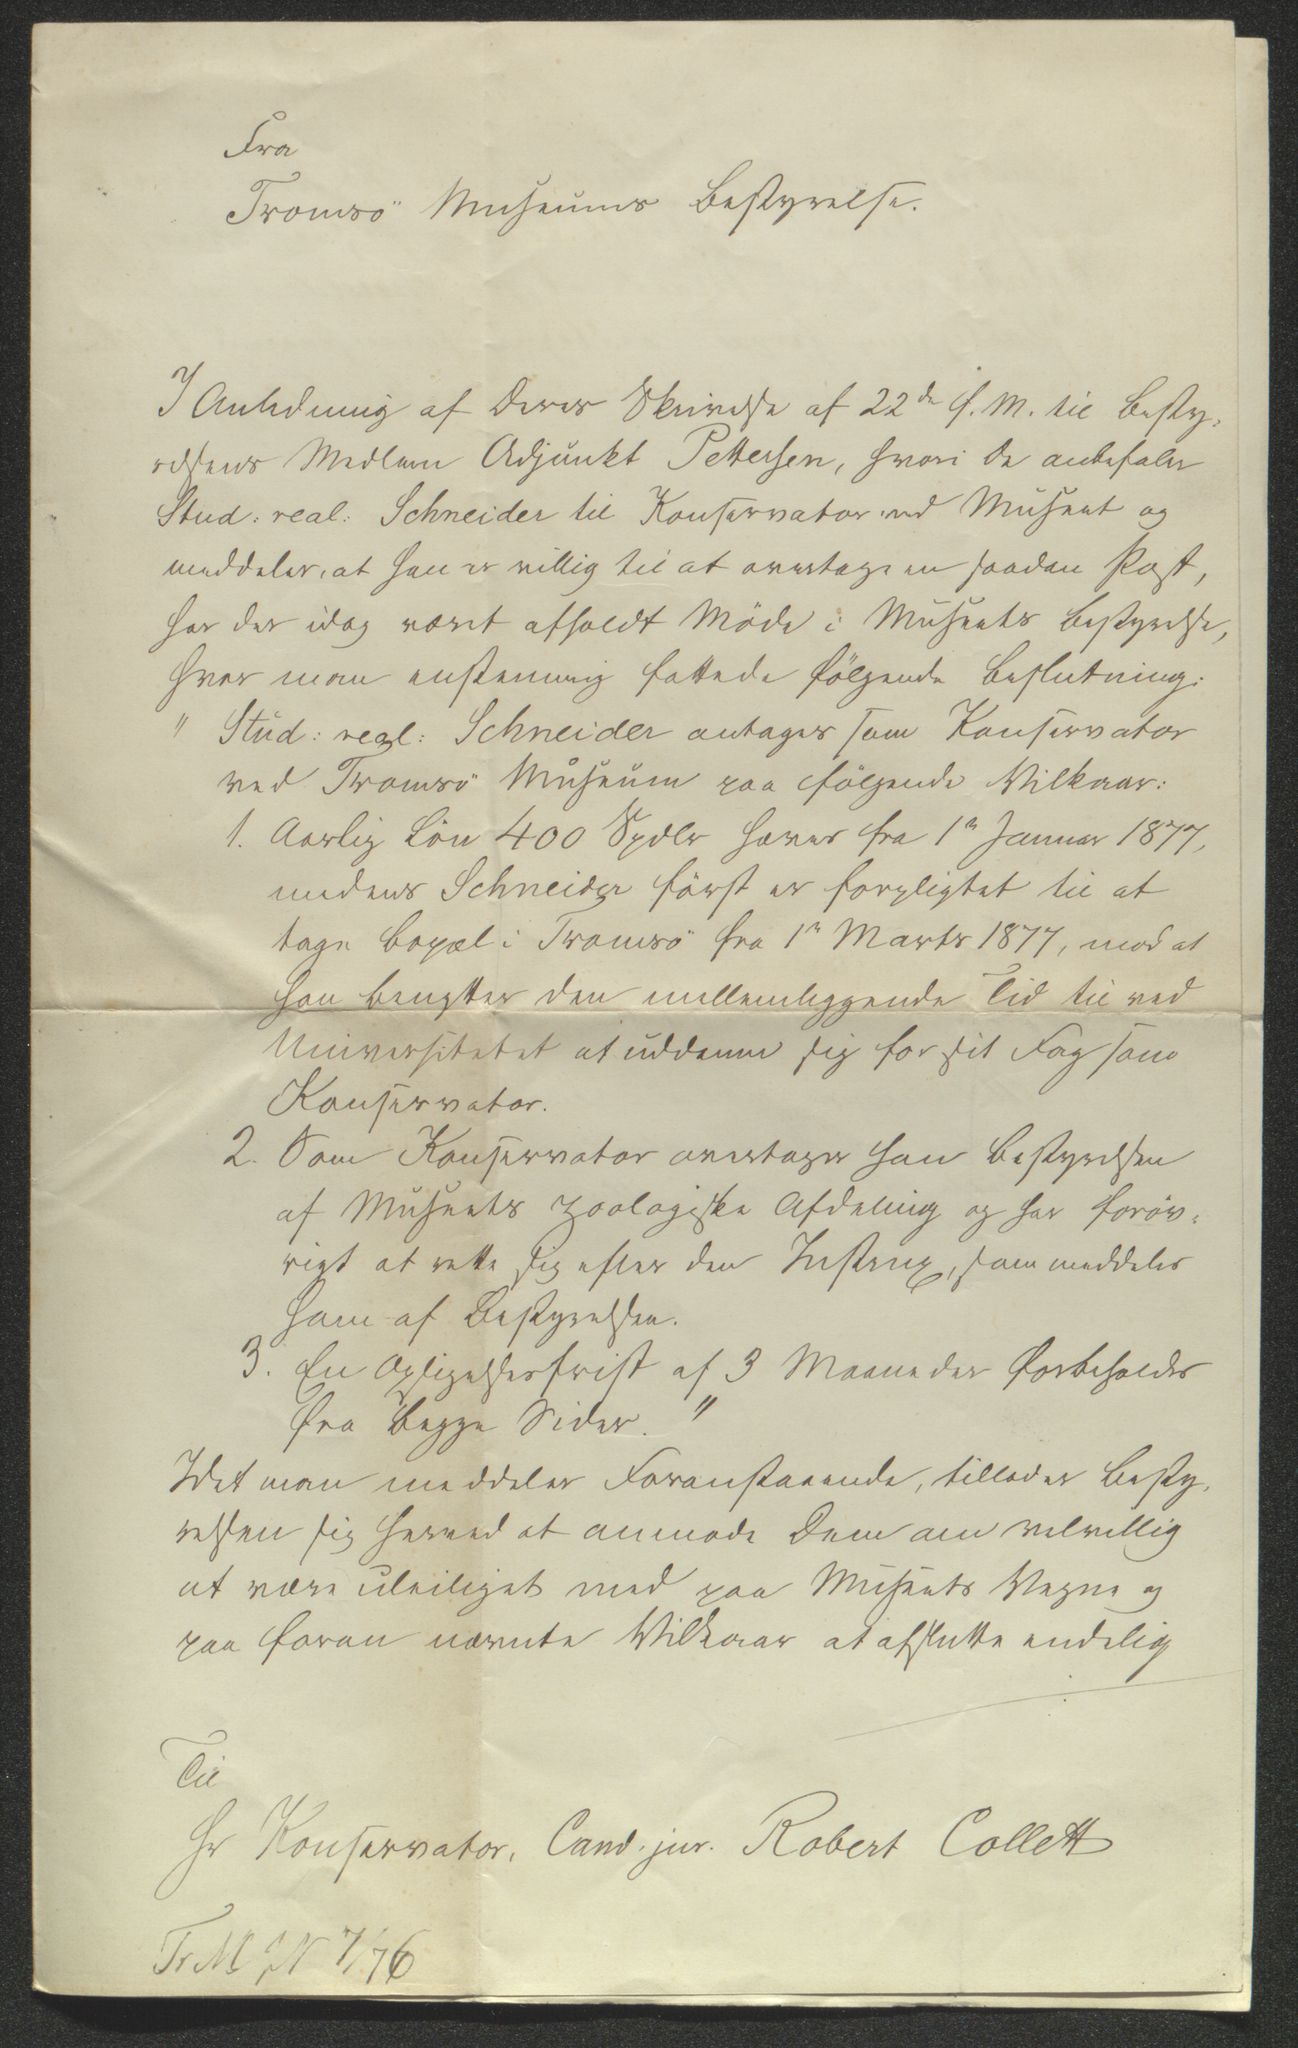 Fra
Tromsö Museums Bestyrelse.
I Anledning af Deres Skrivelse af 22de f. M. til Besty-
relsens Medlem Adjunkt Pettersen, hvori De anbefaler
Stud: real: Schneider til Konservator ved Museet og
meddeler, at han er villig til at overtage en saadan Post,
har der idag været afholdt Möde i Museets Bestyrelse,
hvor man enstemmig fattede fölgende Beslutning:
" Stud: real: Schneider antages som Konservator
ved Tromsö Museum paa fölgende Vilkaar:
1. Aarlig Lön 400 Spdlr hæves fra 1ste Januar 1877,
medens Schneider först er forpligtet til at
tage Bopæl i Tromsö fra 1ste Marts 1877, mod at
han benytter den mellemliggende Tid til ved
Universitetet at uddanne sig for sit Fag som
Konservator.
2. Som Konservator overtager han Bestyrelsen
af Museets zoologiske Afdeling og har foröv-
rigt at rette sig efter den Instrux, som meddeles
ham af Bestyrelsen.
3. En Opsigelsesfrist af 3 Maaneder forbeholdes
fra begge Sider. "
Idet man meddeler Foranstaaende, tillader Besty-
relsen sig herved at anmode Dem om velvillig
at være uleiliget med paa Museets Vegne og
paa foran nævnte Vilkaar at afslutte endelig
Til
Hr Konservator, Cand. jur. Robert Collett
Tr M J N 7/76